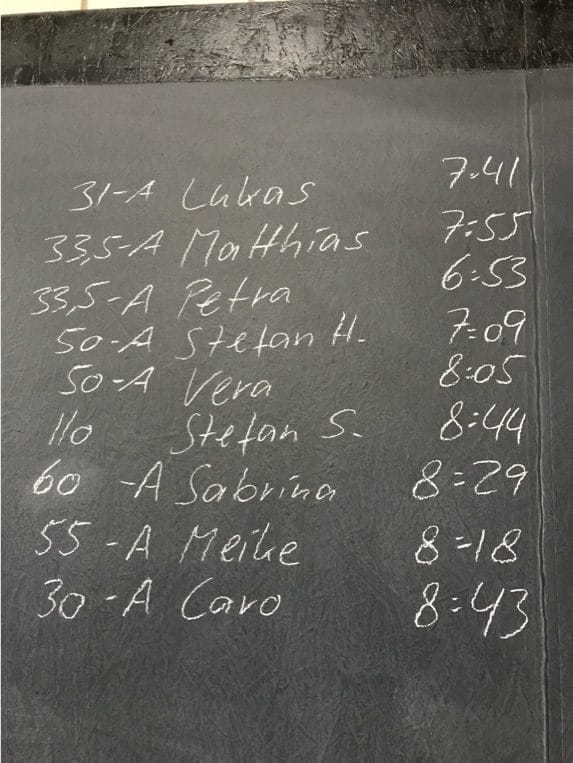 31-A Lukas 7:41
33,5-A Matthias 7:55
33,5-A Petra 6:53
50-A Stefan H. 7:09
50-A Vera 8:05
110 Stefan S. 8:44
60 -A Sabrina 8:29
55 -A Meike 8:18
30 -A Caro 8:43